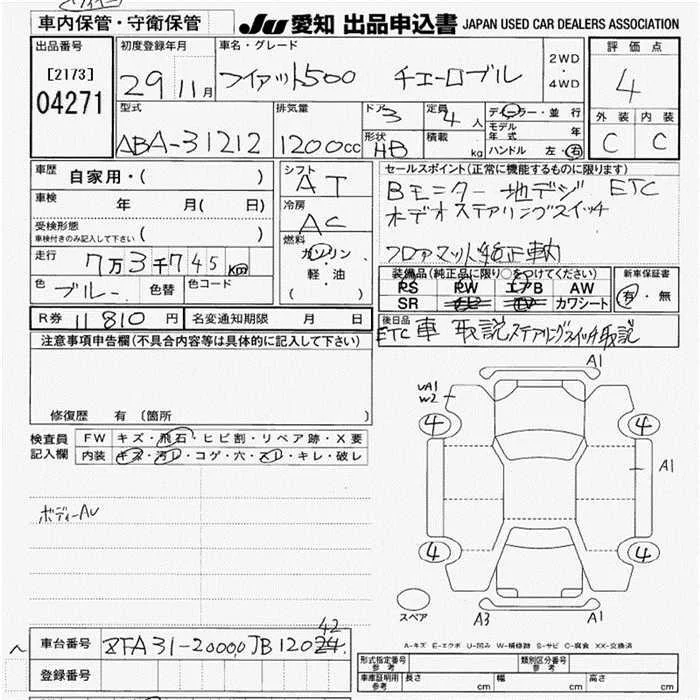 車内保管・守衛保管
JU 愛知 出品申込書 JAPAN USED CAR DEALERS ASSOCIATION
出品番号
[2173]
04271
初度登録年月
29 11月
車名・グレード
フィアット500 チェーロブル
2WD
・
4WD
評価点
4
外装 内装
C C
型式
ABA-31212
排気量
1200cc
ドア 3
形状 HB
定員 4人
積載 kg
ディーラー・並行
モデル年式 年
ハンドル 左・右
車歴 自家用・( )
車検 年 月( 日)
受検形態
車検付きのみ記入して下さい ( )
走行 7万3千745km
色 ブルー 色替 色コード
シフト
AT
冷房
AC
燃料
ガソリン
軽・油
( )
セールスポイント(正常に機能するものに限ります)
Bモニター 地デジ ETC
オデオステアリングスイッチ
フロアマット純正
装備品(純正品に限り○をつけてください)
PS PW エアB AW
SR TV カワシート
新車保証書
有・無
R券 11810円 名変通知期限 月 日
後日品
ETC車 取説 ステアリングスイッチ取説
注意事項申告欄(不具合内容等は具体的に記入して下さい)
修復歴 有(箇所 )
検査員
記入欄
FW キズ・飛石・ヒビ割・リペア跡・X要
内装 キズ・汚レ・コゲ・穴・スレ・キレ・破レ
ボディーAU
A1
UA1
W2
4 4
A1
4 4
スペア
A3 A1
A-キズ E-エクボ U-凹み W-補修跡 S-サビ C-腐食 XX-交換済
車台番号
登録番号
形式指定番号
参考
類別区分番号
参考
車庫証明用
参考
長さ cm 幅 cm 高さ cm